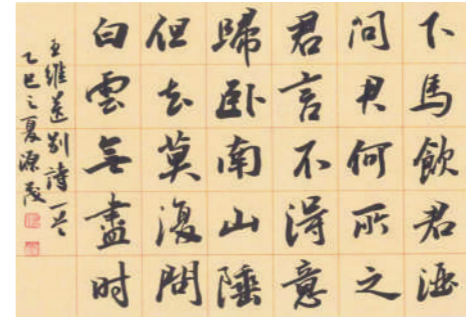 下馬飲君酒
問君何所之
君言不得意
歸臥南山陲
但去莫復問
白雲無盡时
王維送别詩一首
乙巳之夏源茂